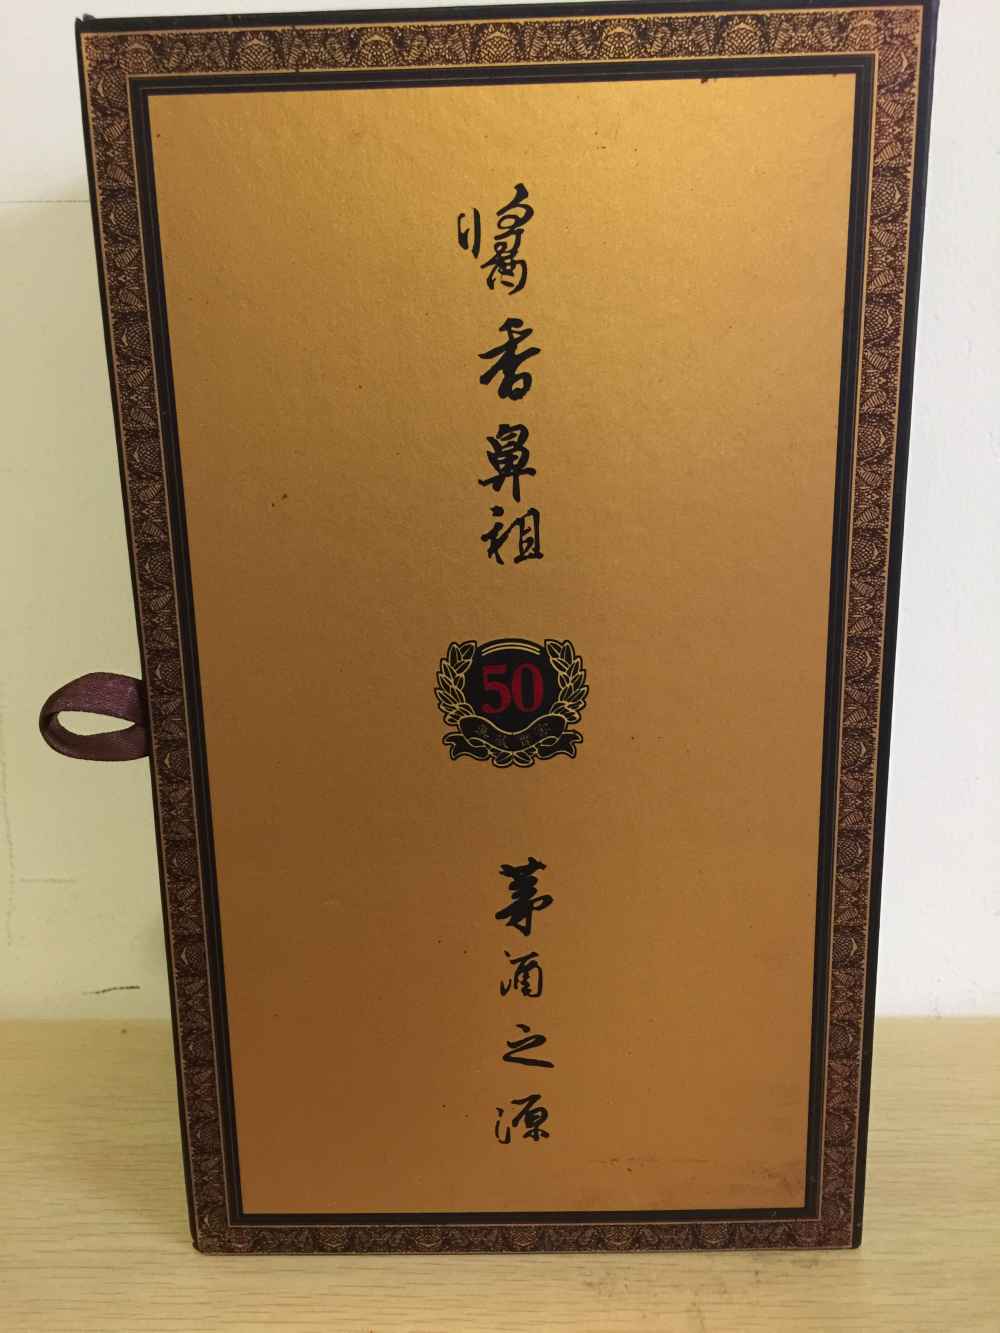 醬香鼻祖
50
茅酒之源